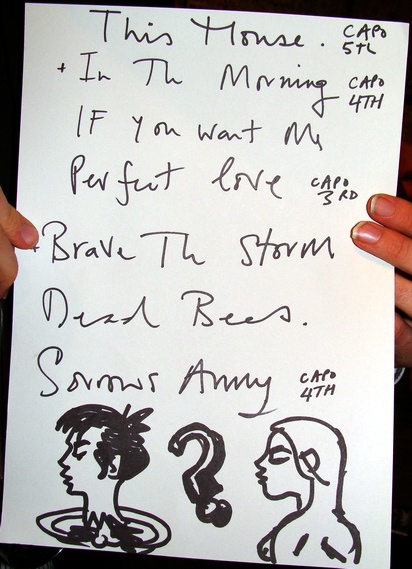 This House. CAPO 5TH
+ In Th Morning CAPO 4TH
IF you want My
Perfect love CAPO 3RD
+ Brave Th Storm
Dead Bees.
Sorrows Army CAPO 4TH
?